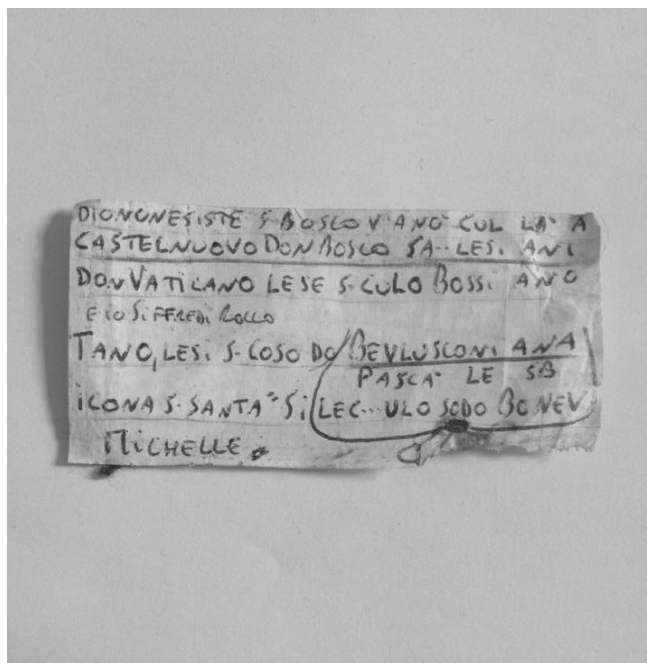 DIONONESISTE S·BOSCO V·ANO CUL LA· A
CASTELNUOVO DON BOSCO SA··LESi ANI
DON VATICANO LESE S·CULO BOSSi ANO
E IO SiFFREDi ROCCO
TANO, LESi S·COSO DO BEVLUSCONi ANA
PASCA· LE SB
iCONA S·SANTA" Si LEC···ULO SODO BONEV
MiCHELLE.